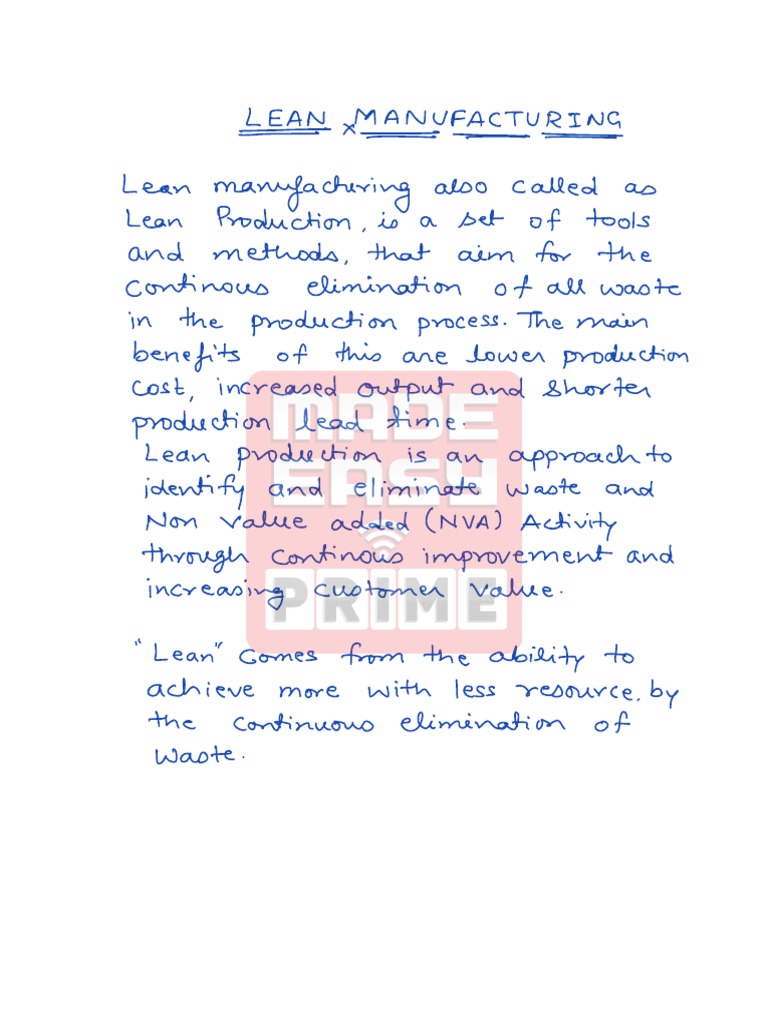 LEAN MANUFACTURING
Lean manufacturing also called as
Lean Production, is a set of tools
and methods, that aim for the
continous elimination of all waste
in the production process. The main
benefits of this are lower production
cost, increased output and shorter
production lead time.
Lean production is an approach to
identify and eliminate waste and
Non Value added (NVA) Activity
through continous improvement and
increasing customer value.
"Lean" comes from the ability to
achieve more with less resource, by
the continuous elimination of
waste.
MADE
EASY
PRIME